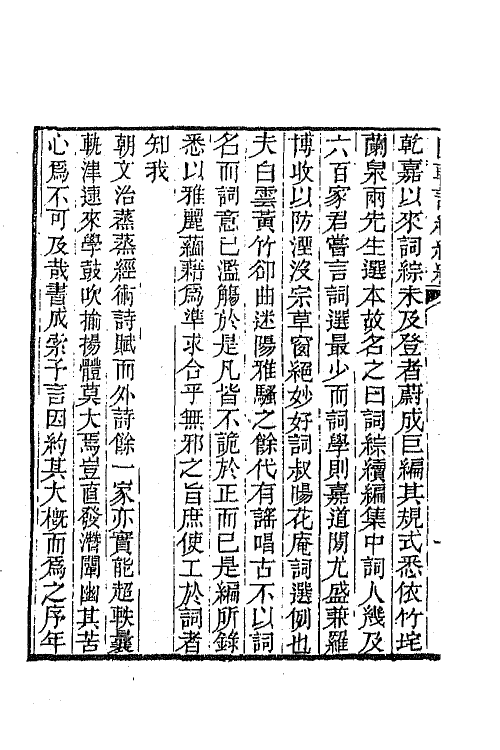 乾嘉以來詞綜未及登者蔚成巨編其規式悉依竹垞
蘭泉兩先生選本故名之曰詞綜續編集中詞人幾及
六百家君嘗言詞選最少而詞學則嘉道間尤盛兼羅
博收以防湮沒宗草窗絕妙好詞叔暘花庵詞選例也
夫白雲黃竹卻曲迷陽雅騷之餘代有謠唱古不以詞
名而詞意已濫觴於是凡皆不詭於正而已是編所錄
悉以雅麗蘊藉為準求合乎無邪之旨庶使工於詞者
知我
朝文治蒸蒸經術詩賦而外詩餘一家亦實能超軼曩
軌津逮來學鼓吹揄揚體莫大焉豈直發潛闡幽其苦
心為不可及哉書成索予言因約其大概而為之序年